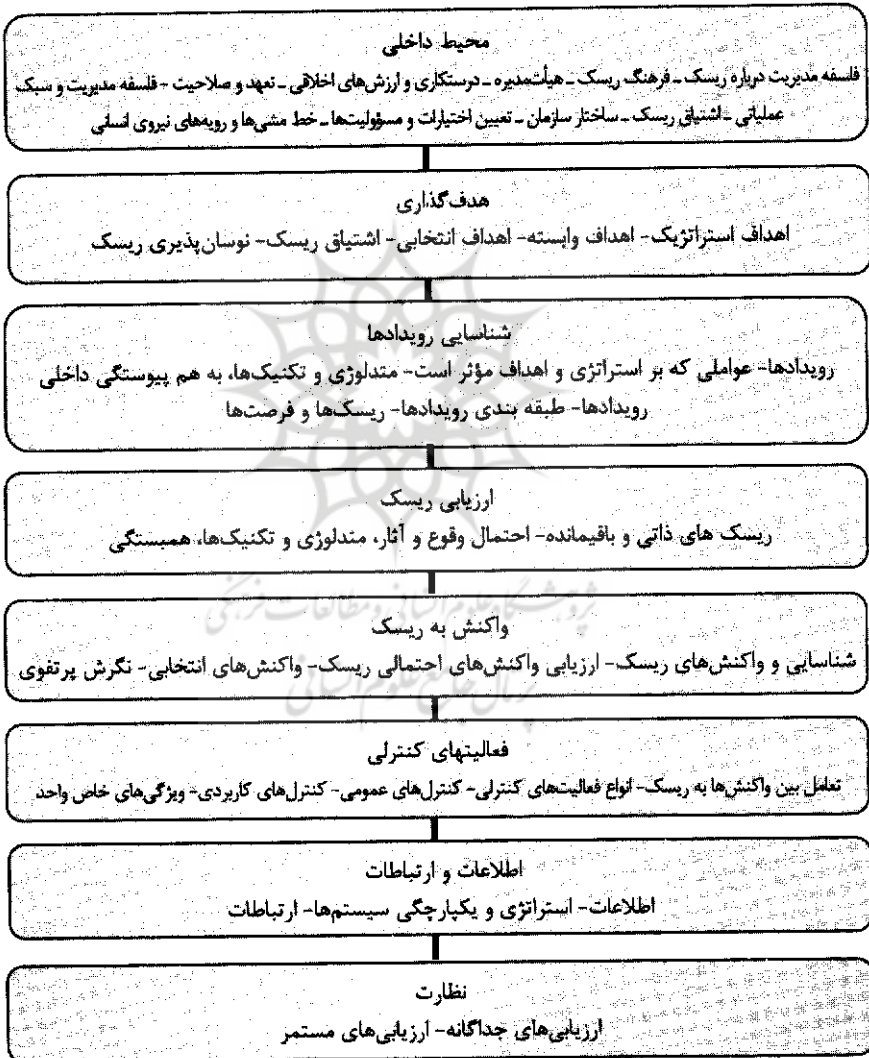 محیط داخلی
فلسفه مدیریت درباره ریسک ـ فرهنگ ریسک ـ هیأت‌مدیره ـ درستکاری و ارزش‌های اخلاقی ـ تعهد و صلاحیت - فلسفه مدیریت و سبک
عملیاتی ـ اشتیاق ریسک ـ ساختار سازمان ـ تعیین اختیارات و مسؤولیت‌ها ـ خط مشی‌ها و رویه‌های نیروی انسانی
هدف‌گذاری
اهداف استراتژیک- اهداف وابسته- اهداف انتخابی- اشتیاق ریسک- نوسان‌پذیری ریسک
شناسایی رویدادها
رویدادها- عواملی که بر استراتژی و اهداف مؤثر است- متدلوژی و تکنیک‌ها، به هم پیوستگی داخلی
رویدادها- طبقه بندی رویدادها- ریسک‌ها و فرصت‌ها
ارزیابی ریسک
ریسک های ذاتی و باقیمانده- احتمال وقوع و آثار، متدلوژی و تکنیک‌ها، همبستگی
پژوهشگاه علوم انسانی و مطالعات فرهنگی
واکنش به ریسک
شناسایی و واکنش‌های ریسک- ارزیابی واکنش‌های احتمالی ریسک- واکنش‌های انتخابی- نگرش پرتفوی
پرتال جامع علوم انسانی
فعالیتهای کنترلی
تعامل بین واکنش‌ها به ریسک- انواع فعالیت‌های کنترلی- کنترل‌های عمومی- کنترل‌های کاربردی- ویژگی‌های خاص واحد
اطلاعات و ارتباطات
اطلاعات- استراتژی و یکپارچگی سیستم‌ها- ارتباطات
نظارت
ارزیابی‌های جداگانه- ارزیابی‌های مستمر